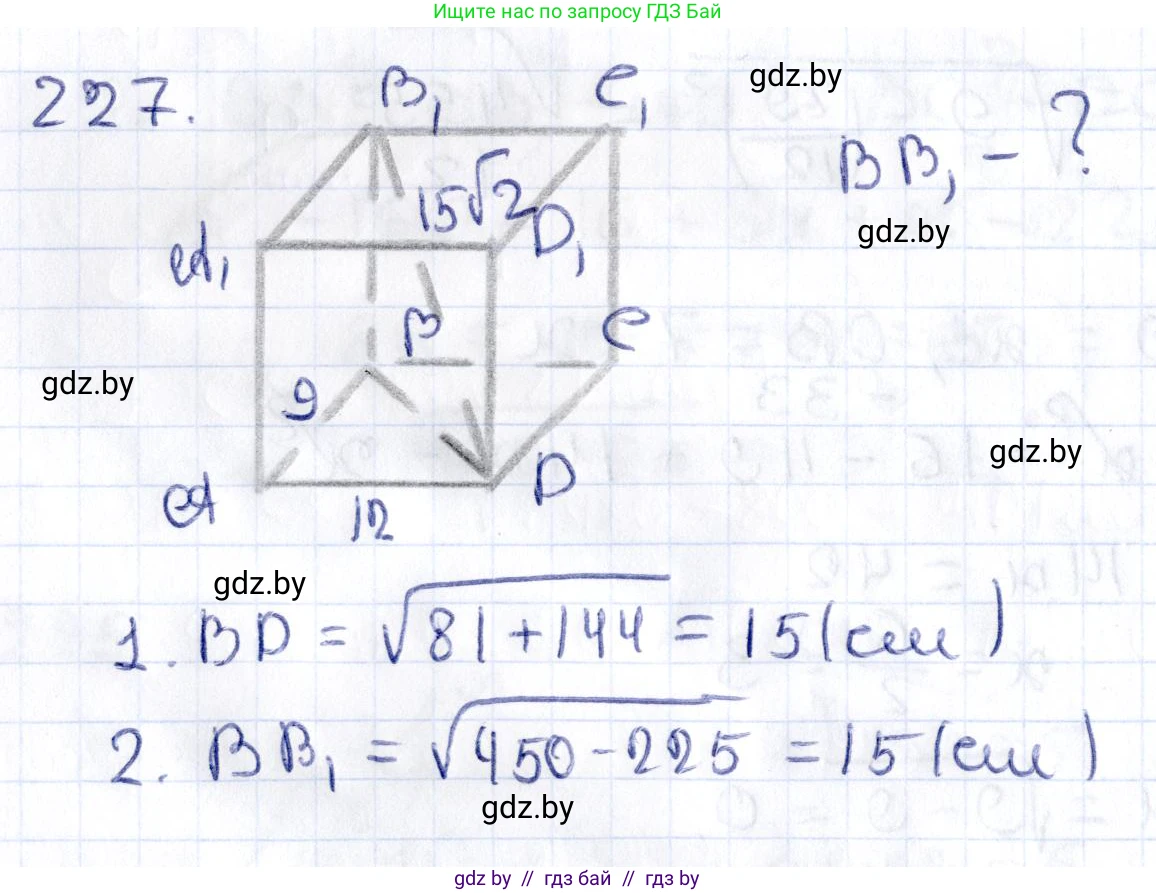 Ищите нас по запросу ГДЗ Бай
227.
B₁ C₁
gdz.by
BB₁ - ?
15√2
D₁
gdz.by
A₁
B
C
gdz.by
9
gdz.by
A
D
12
gdz.by
1. BD = √81+144 = 15(см)
2. BB₁ = √450-225 = 15(см)
gdz.by
gdz.by // гдз бай // гдз by